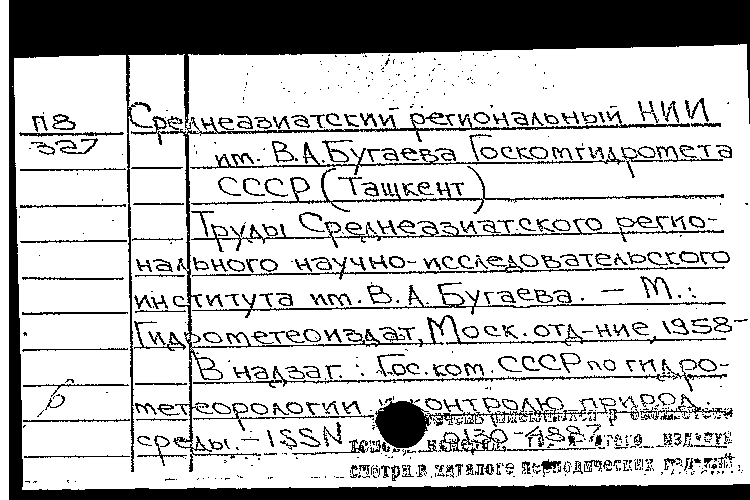 П8 Среднеазиатский региональный НИИ
327 им. В.А.Бугаева Госкомгидромета
СССР (Ташкент)
Труды Среднеазиатского регио-
нального научно-исследовательского
института им. В.А. Бугаева. – М.:
Гидрометеоиздат, Моск. отд-ние, 1958-
В надзаг.: Гос. ком. СССР по гидро-
6 метеорологии и контролю природ.
среды. – ISSN 0130-4887
перечень имеющихся в библиотеке
томов, номеров, и этого издания
смотри в каталоге периодических изданий.